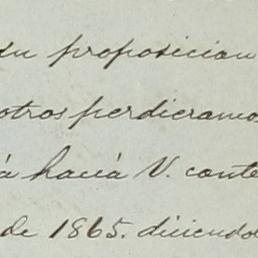 su proposicion
otros perdieramos
á hacía V. conte
de 1865. diciendo